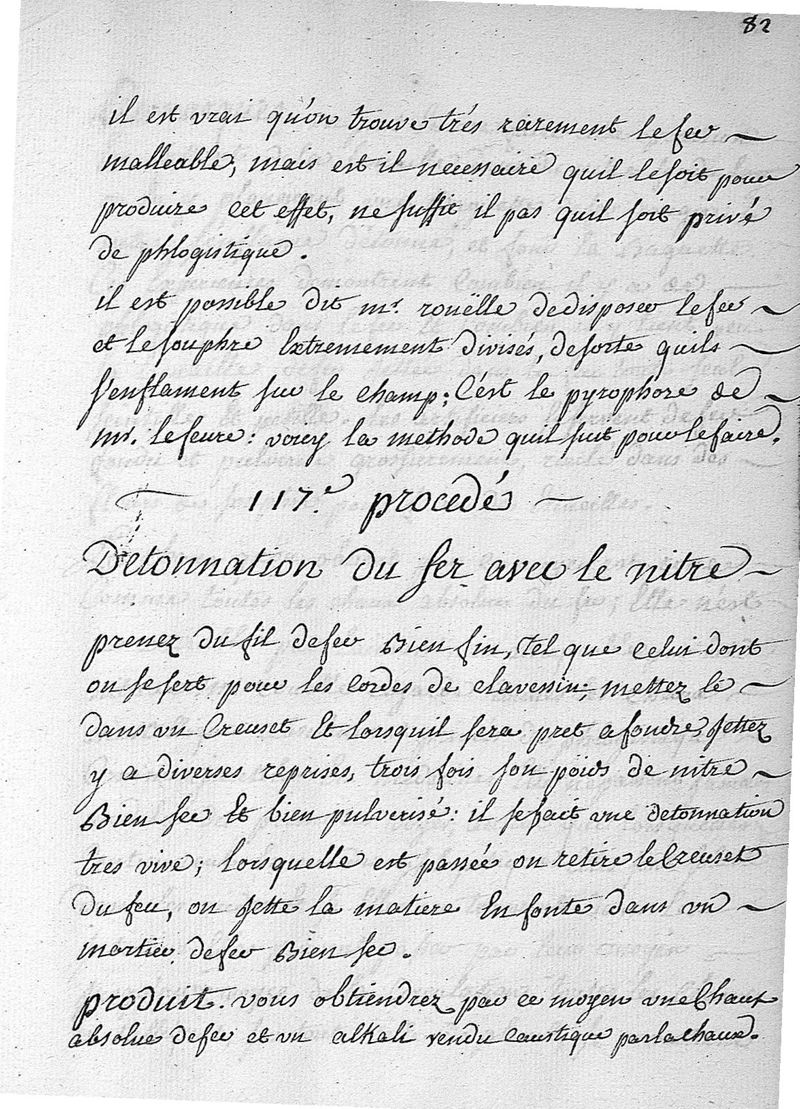 82
il est vrai qu'on trouve trés rarement le fer
malleable, mais est il necessaire quil le soit pour
produire cet effet, ne suffit il pas quil soit privé
de phlogistique.
il est possible dit mr. rouëlle de disposer le fer
et le souphre Extremement divisés, de sorte quils
s'enflament sur le champ; C'est le pyrophore de
mr. lefeure: voicy la methode quil suit pour le faire.
117.e procedé
Detonnation du fer avec le nitre
prenez du fil de fer Bien fin, tel que celui dont
on se sert pour les Cordes de clavessin; mettez le
dans un Creuset Et lorsquil sera pret a fondre, Jettez
y a diverses reprises, trois fois son poids de nitre
Bien sec Et bien pulverisé: il se fait une detonnation
tres vive; lorsquelle est passée on retire le Creuset
Du feu, on Jette la matiere En fonte dans un
mortier de fer Bien sec.
produit. vous obtiendrez par ce moyen une Chaux
absolue de fer et un alkali rendu Caustique par la chaux.